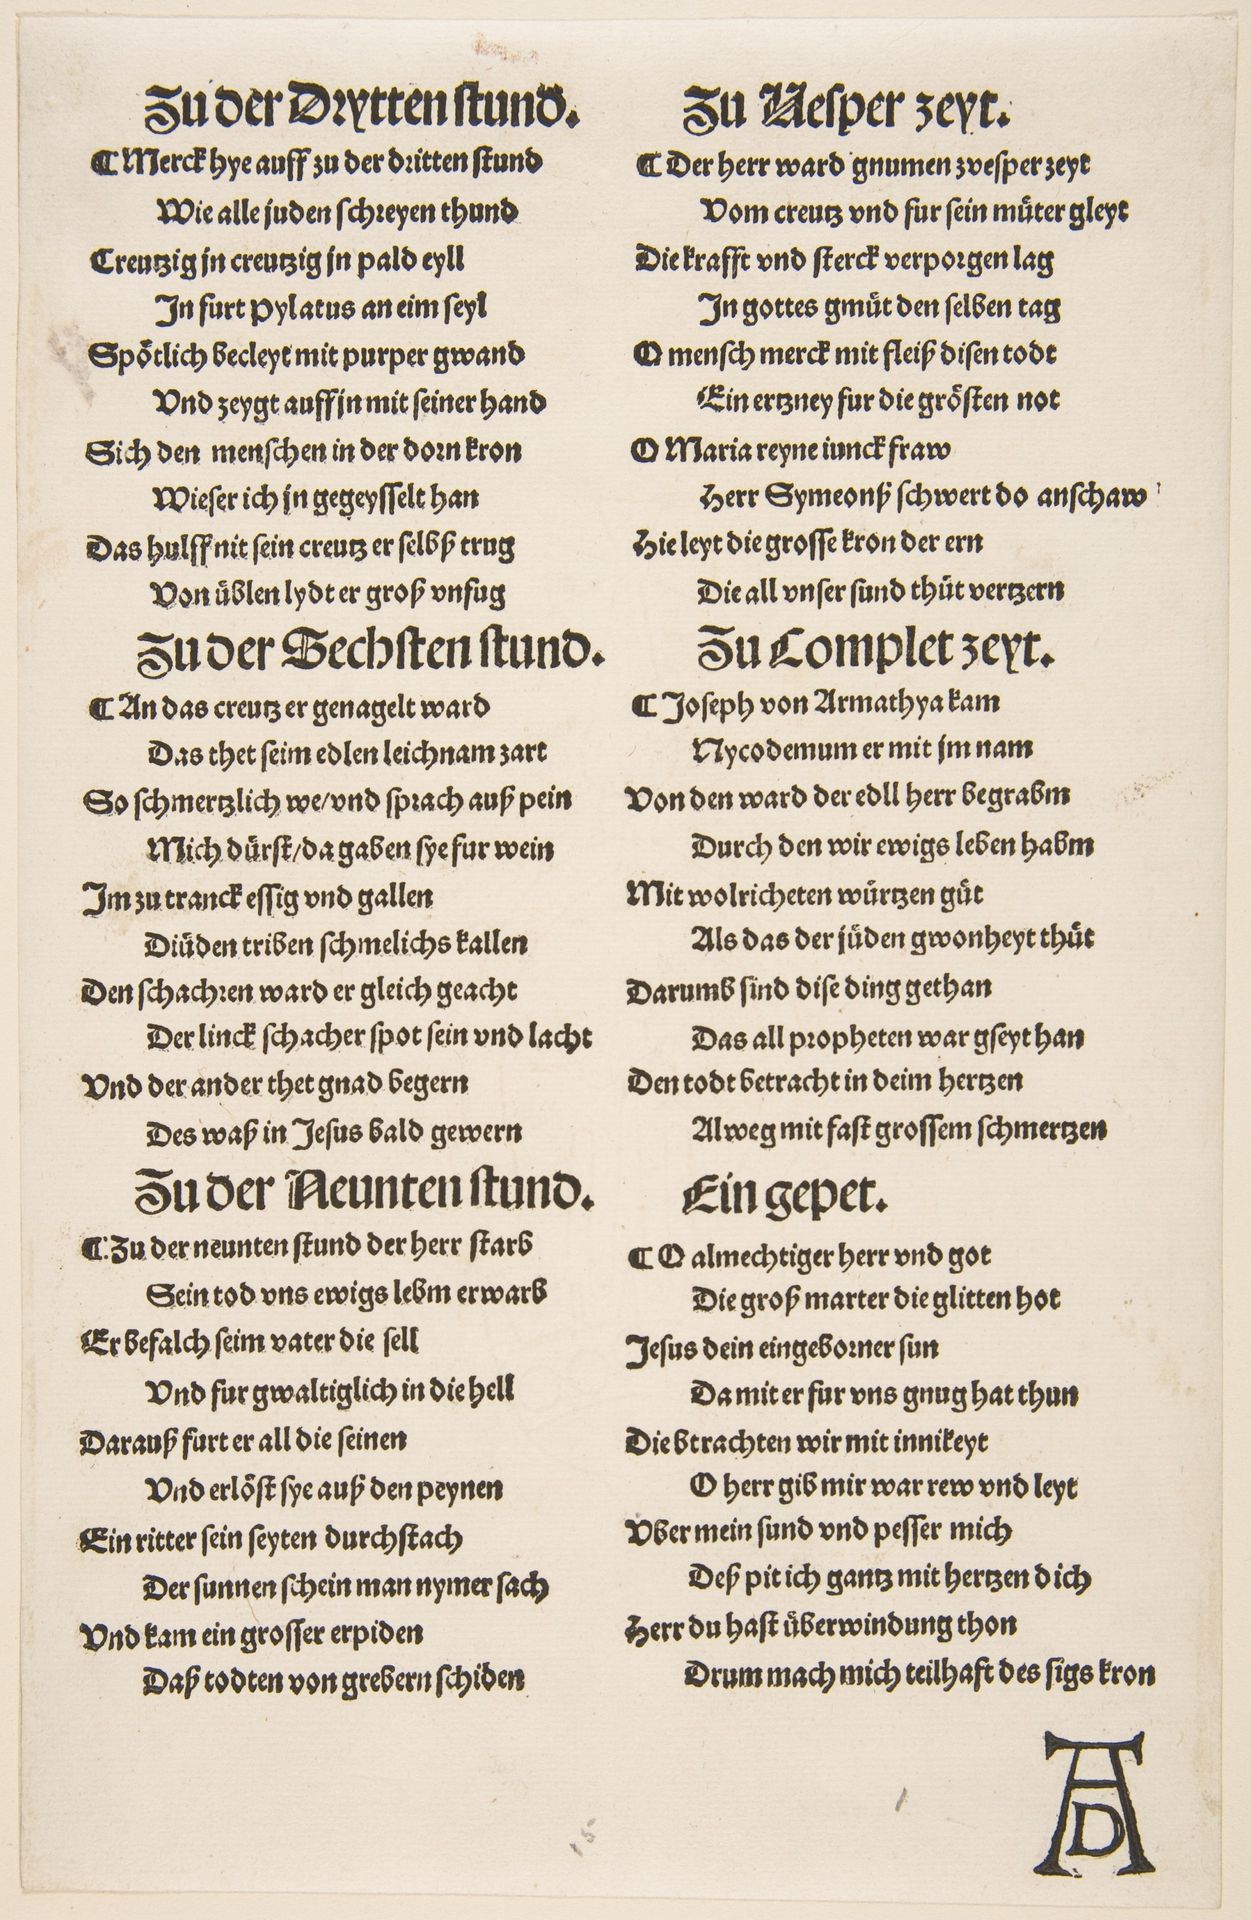 Zu der Drytten stund.
¶ Merck hye auff zu der dritten stund
Wie alle juden schreyen thund
Creutzig jn creutzig jn pald eyll
In furt Pylatus an eim seyl
Spötlich becleyt mit purper gwand
Vnd zeygt auff jn mit seiner hand
Sich den menschen in der dorn kron
Wieser ich jn gegeysselt han
Das hulff nit sein creutz er selbß trug
Von üblen lydt er groß vnfug
Zu der Sechsten stund.
¶ An das creutz er genagelt ward
Das thet seim edlen leichnam zart
So schmertzlich we/vnd sprach auß pein
Mich dürst/da gaben sye fur wein
Im zu tranck essig vnd gallen
Diüden triben schmelichs kallen
Den schachren ward er gleich geacht
Der linck schacher spot sein vnd lacht
Vnd der ander thet gnad begern
Des waß in Jesus bald gewern
Zu der Neunten stund.
¶ Zu der neunten stund der herr starb
Sein tod vns ewigs lebm erwarb
Er befalch seim vater die sell
Vnd fur gwaltiglich in die hell
Darauß furt er all die seinen
Vnd erlöst sye auß den peynen
Ein ritter sein seyten durchstach
Der sunnen schein man nymer sach
Vnd kam ein grosser erpiden
Daß todten von grebern schiden
Zu Vesper zeyt.
¶ Der herr ward gnumen zvesper zeyt
Vom creutz vnd fur sein muͤter gleyt
Die krafft vnd sterck verporgen lag
In gottes gmuͤt den selben tag
O mensch merck mit fleiß disen todt
Ein ertzney fur die grösten not
O Maria reyne iunckfraw
Herr Symeonß schwert do anschaw
Hie leyt die grosse kron der ern
Die all vnser sund thuͤt vertzern
Zu Complet zeyt.
¶ Joseph von Armathya kam
Nycodemum er mit jm nam
Von den ward der edll herr begrabm
Durch den wir ewigs leben habm
Mit wolricheten würtzen guͤt
Als das der jüden gwonheyt thuͤt
Darumb sind dise ding gethan
Das all propheten war gseyt han
Den todt betracht in deim hertzen
Alweg mit fast grossem schmertzen
Ein gepet.
¶ O almechtiger herr vnd got
Die groß marter die glitten hot
Jesus dein eingeborner sun
Damit er fur vns gnug hat thun
Die btrachten wir mit innikeyt
O herr gib mir war rew vnd leyt
Vber mein sund vnd pesser mich
Deß pit ich gantz mit hertzen dich
Herr du hast überwindung thon
Drum mach mich teilhaft des sigs kron
AD